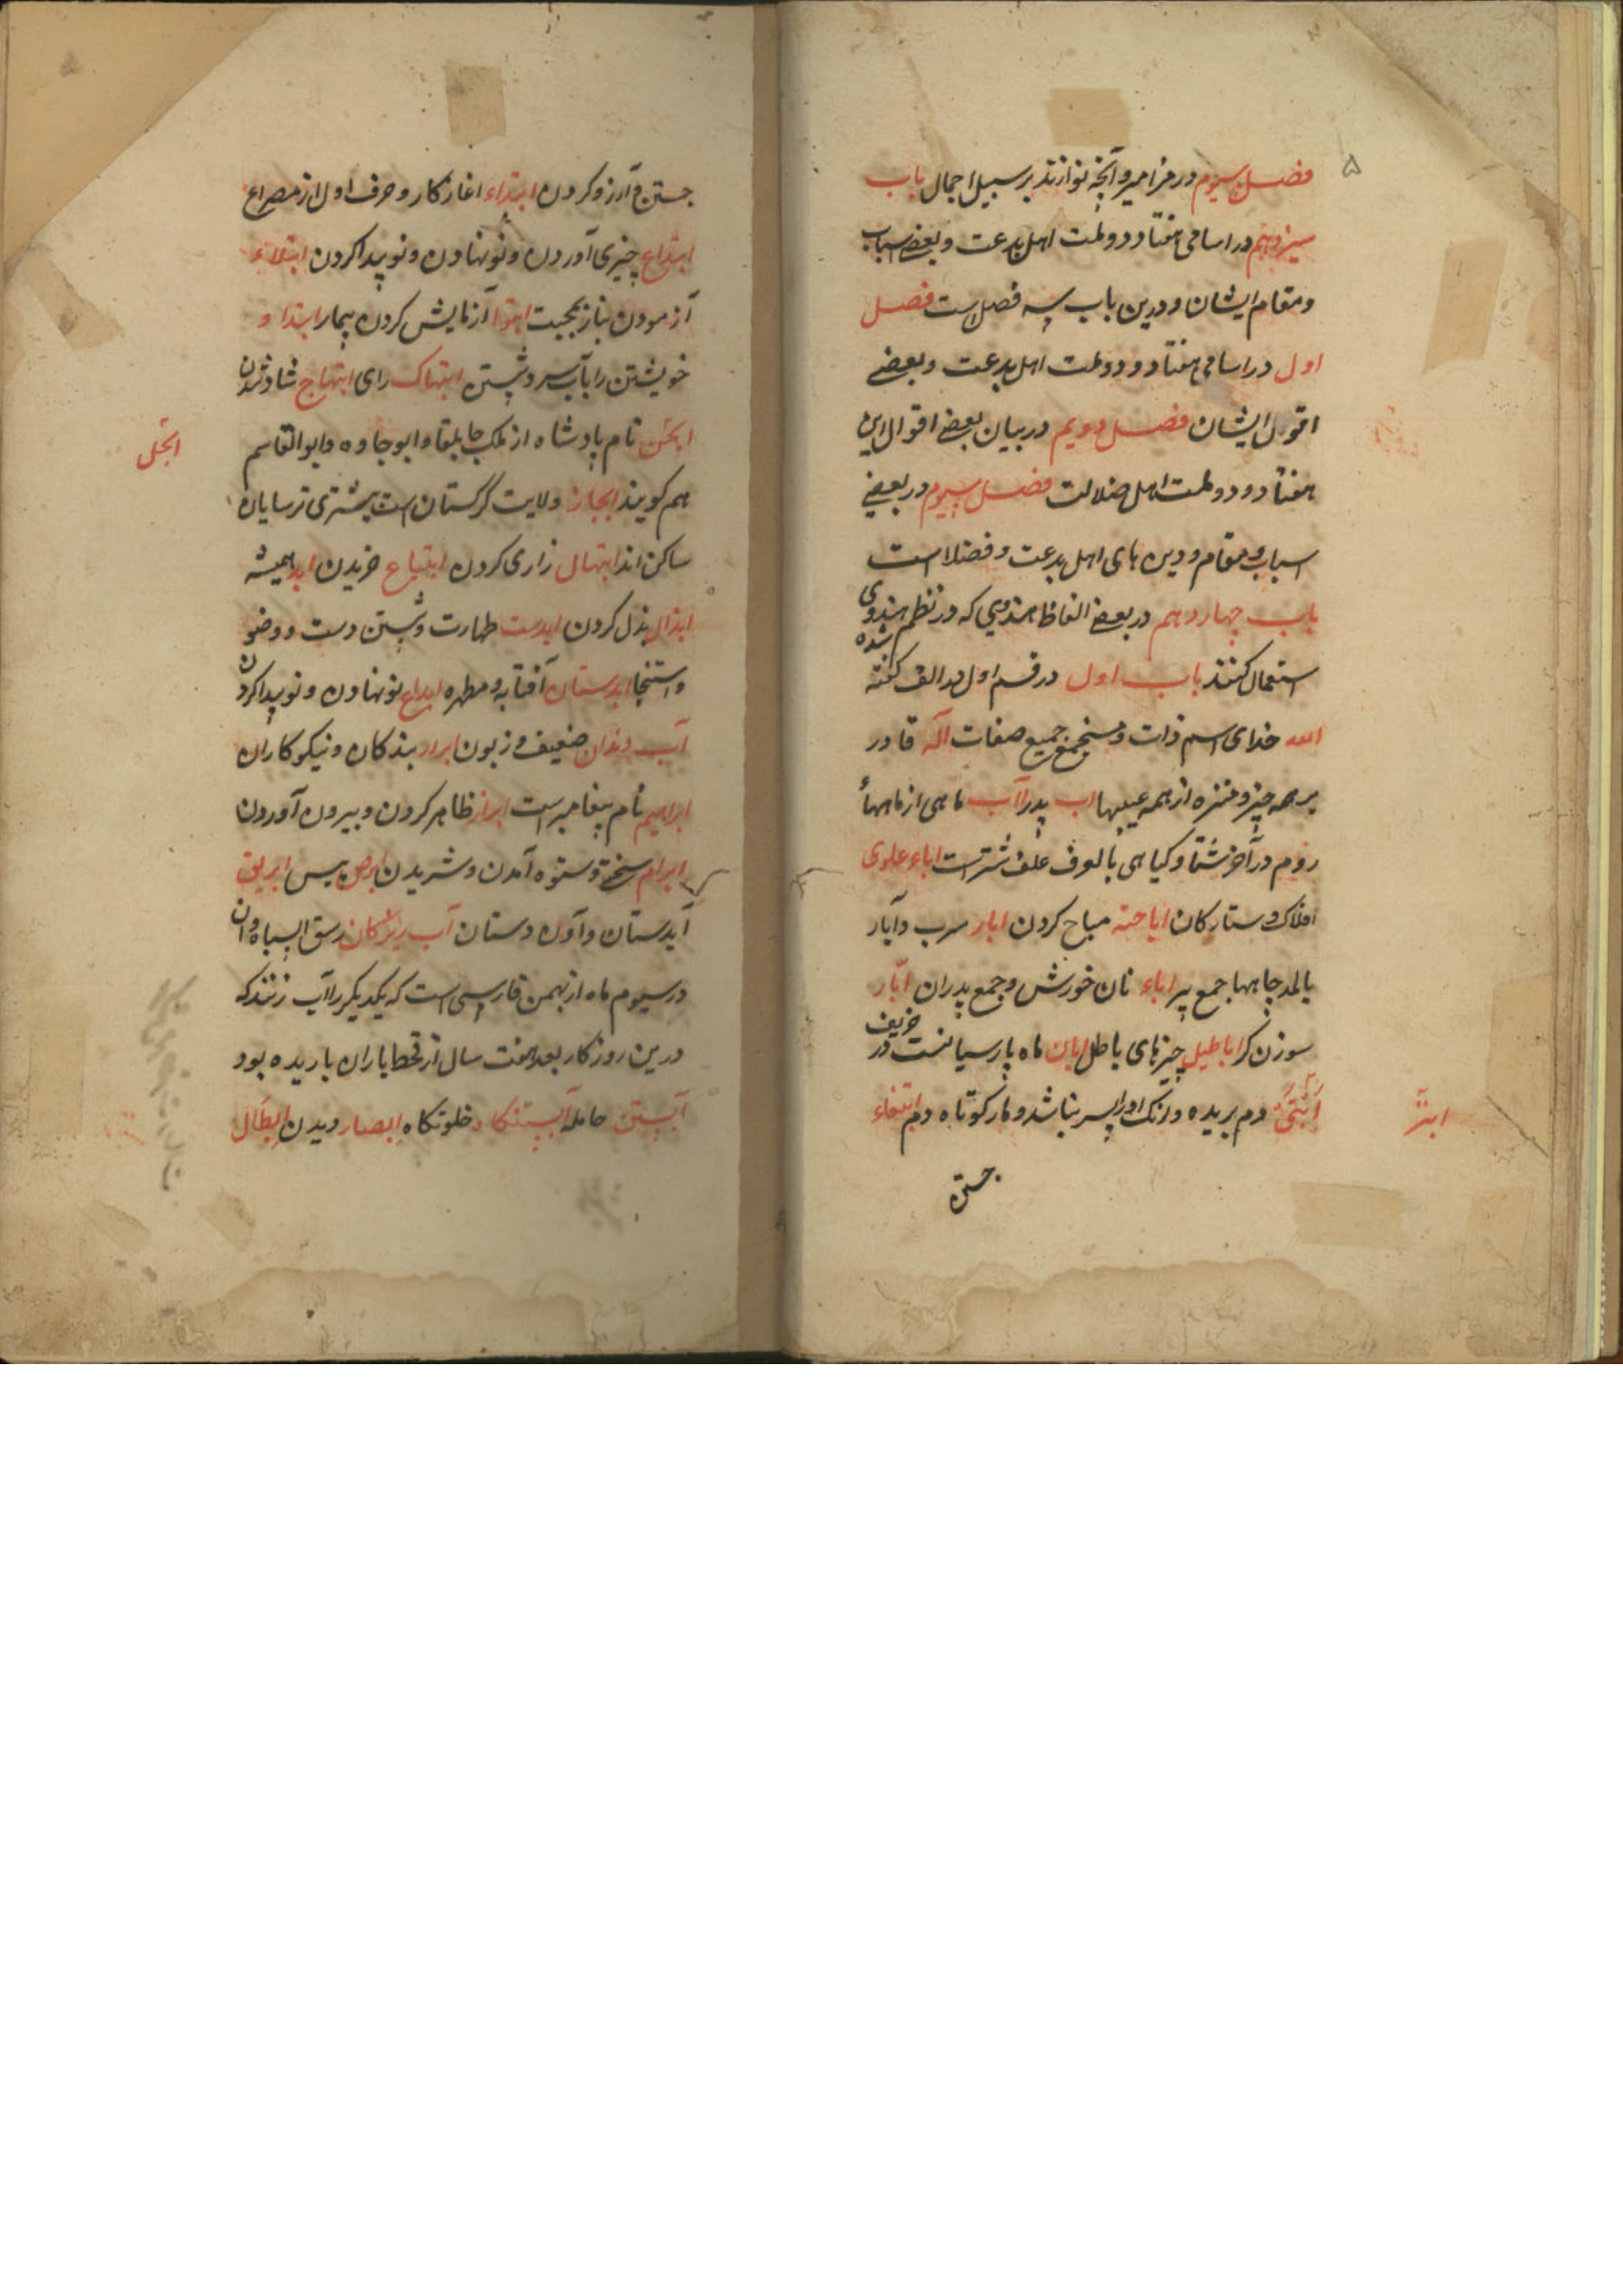 ۵
فصل سیوم در مزامیر و آنچه نوازند بر سبیل اجمال باب
سیزدهم در اسامی هفتاد و دو ملت اهل بدعت و بعضے اسباب
و مقام ایشان و درین باب سه فصل است فصل
اول در اسامی هفتاد و دو ملت اهل بدعت و بعضے
اقوال ایشان فصل دویم در بیان بعضے اقوال این
هفتاد و دو ملت اهل ضلالت فصل سیوم در بعضے
اسباب و مقام و دین های اهل بدعت و فضلا است
باب چهاردهم در بعضے الفاظ هندوی که در نظم هندوی
استعمال کنند باب اول در قسم اول در الف گفته شده
الله خدای اسم ذات و مستجمع جمیع صفات اله قادر
بر همه چیز و منزه از همه عیبها اب پدر آب ماهی از ماههاء
روم در آخر شتا و گیاهی بالوف علف شتر است اباء علوی
افلاک و ستارکان اباحته مباح کردن ابار سرب و آبار
بالمد چاهها جمع بیر اباء نان خورش و جمع پدران ابّار
سوزن کر اباطیل چیزهای باطل ابان ماه پارسیانست در خریف
ابتر دم بریده و آنک او را پسر نباشد و مار کوتاه دم ابتغاء
ابتر
جستن
جستن و آرزو کردن ابتداء اغاز کار و حرف اول از مصراع
ابتداع چیزی آوردن و نو نهادن و نو پیدا کردن ابتلاء
آزمودن آزمایش کردن بیمار ابتدا و
خویشتن را بآب سرد شستن ابتهاک رای ابتهاج شاد شدن
نام پادشاه از ملک جابلقا و ابوجاوه و ابوالقاسم
هم کویند ابخاز ولایت کرکستان است بیشتری ترسایان
ساکن اند ابتهال زاری کردن ابتیاع خریدن ابد همیشه
ابذال بذل کردن ابدست طهارت و شستن دست و وضو
و استنجا ابدستان آفتابه و مطهره ابداع نو نهادن و نو پیدا کردن
آب دندان ضعیف و زبون ابرار بندکان و نیکوکاران
ابراهیم نام پیغامبر است ابراز ظاهر کردن و بیرون آوردن
ابرام سخت و ستوه آمدن و ابرص پیس ابریق
آبدستان و دستان آب ریزکان
در سیوم ماه از بهمن فارسی است که یکدیکر را آب زنند که
درین روزکار بعد هفت سال از قحط باران باریده بود
آبستن حامله آبستنکاه خلوتکاه ابصار دیدن ابطال